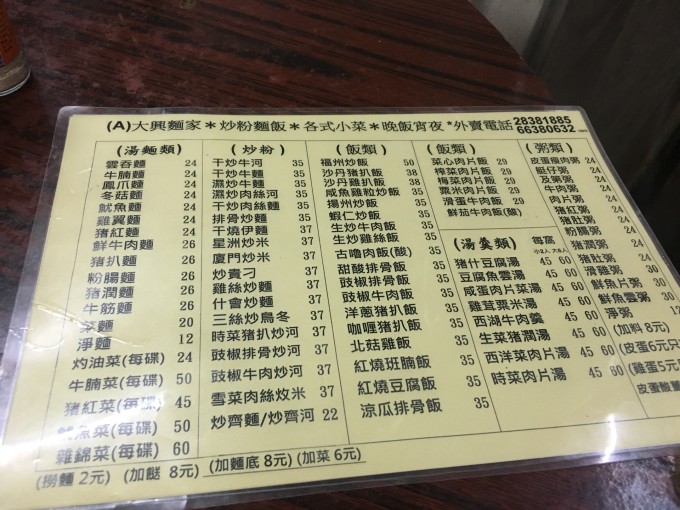 (A)大興麵家＊炒粉麵飯＊各式小菜＊晚飯宵夜*外賣電話 28381885
66380632
(湯麵類)
雲吞麵 24
牛腩麵 24
鳳爪麵 24
冬菇麵 24
魷魚麵 24
雞翼麵 24
猪紅麵 24
鮮牛肉麵 26
猪扒麵 26
粉腸麵 26
猪潤麵 26
牛筋麵 26
菜麵 20
淨麵 12
灼油菜(每碟) 24
牛腩菜(每碟) 50
猪紅菜(每碟) 45
魷魚菜(每碟) 50
雜錦菜(每碟) 60
(炒粉)
干炒牛河 35
干炒牛麵 35
濕炒牛河 35
濕炒肉絲河 35
干炒肉絲麵 35
排骨炒麵 35
干燒伊麵 37
星洲炒米 37
廈門炒米 37
炒貴刁 37
雞絲炒麵 37
什會炒麵 37
三絲炒烏冬 37
時菜猪扒炒河 37
豉椒排骨炒河 37
豉椒牛肉炒河 37
雪菜肉絲炆米 37
炒齋麵/炒齋河 22
(飯類)
福州炒飯 50
沙丹猪扒飯 38
沙丹雞扒飯 38
咸魚雞粒炒飯 35
揚州炒飯 35
蝦仁炒飯 35
生炒牛肉飯 35
生炒雞絲飯 35
古嚕肉飯(酸) 35
甜酸排骨飯 35
豉椒排骨飯 35
豉椒牛肉飯 35
洋蔥猪扒飯 35
咖喱猪扒飯 35
北菇雞飯 35
紅燒班腩飯 35
紅燒豆腐飯 35
涼瓜排骨飯 35
(飯類)
菜心肉片飯 29
榨菜肉片飯 29
梅菜肉片飯 29
粟米肉片飯 29
滑蛋牛肉飯 29
鮮茄牛肉飯(酸) 29
(湯羹類) 每窩
猪什豆腐湯 45 60
豆腐魚雲湯 45 60
咸蛋肉片菜湯 45 60
雞茸粟米湯 45 60
西湖牛肉羹 45 60
生菜猪潤湯 45 60
西洋菜肉片湯 45 60
時菜肉片湯 45 60
(粥類)
皮蛋瘦肉粥 24
艇仔粥 24
及第粥 24
牛肉粥 24
肉片粥 24
猪紅粥 24
猪肚粥 24
粉腸粥 24
猪潤粥 24
滑雞粥 30
鮮魚片粥 30
鮮魚雲粥 30
淨粥 12
(加料 8元)
(皮蛋 6元只
(雞蛋 5元只
(撈麵 2元) (加餸 8元) (加麵底 8元) (加菜 6元)